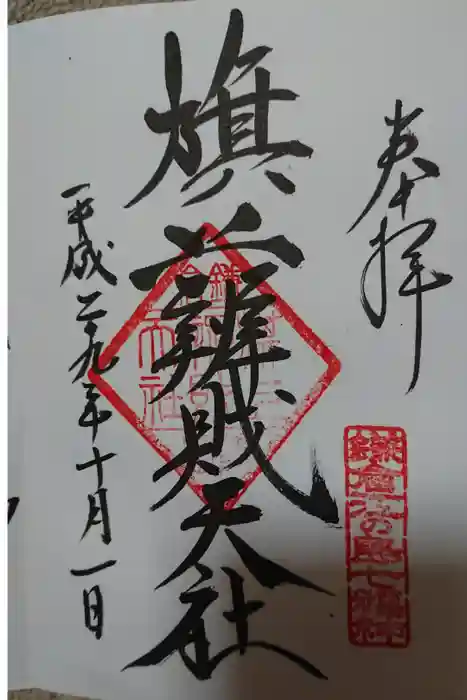 奉拝
鎌倉江の島七福神
旗上辨財天社
平成二十九年十月一日